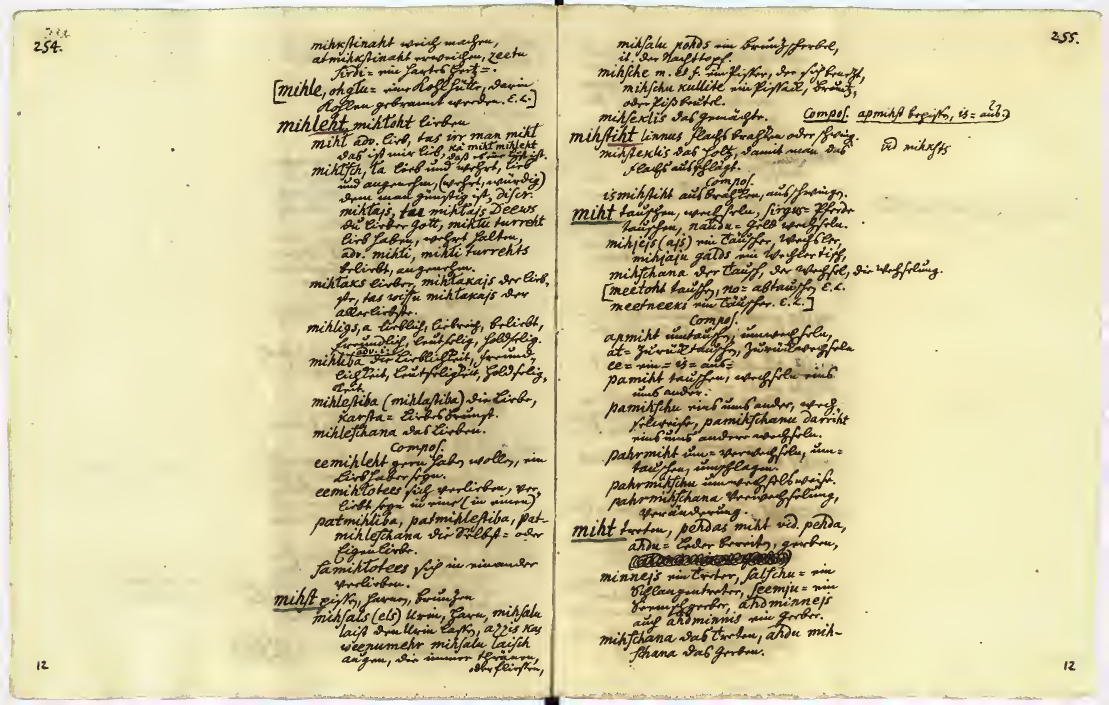 254.
mihkstinaht weich machen,
atmihkstinaht erweichen, zeetu
sirdi = ein hartes Hertz = .
[mihle, ohglu = eine Kohlhütte, darin
Kohlen gebrannt werden. E. L.]
mihleht, mihloht lieben
mihl adv. lieb, tas irr man mihl
das ist mir lieb,
mihlsch, la lieb und wehrt, lieb
und angenehm, (wehrt, würdig)
dem man günstig ist,
mihlajs, tas mihlajs Deews
du lieber Gott, mihlu turreht
lieb haben, wehrt halten,
adv. mihli, mihli turrehts
beliebt, angenehm.
mihlaks lieber, mihlakajs der lieb,
ste, tas wissu mihlakajs der
allerliebste.
mihligs, a lieblich, liebreich, beliebt,
freundlich, leutselig, holdselig.
mihliba die Lieblichkeit, freund,
lichkeit, Leutseligkeit, Holdselig,
keit.
mihlestiba (mihlastiba) die Liebe,
karsta = Liebesbrunst.
mihleschana das Lieben.
Compos.
eemihleht gern haben wollen, ein
Liebhaber seyn.
eemihlotees sich verlieben, ver,
liebt seyn in eine (in einen)
patmihliba, patmihlestiba, pat-
mihleschana die Selbst = oder
Eigenliebe.
samihlotees sich in einander
verlieben.
mihst pissen, harnen, brunzen
mihsals (els) Urin, Harn, mihsalu
laist den Urin lassen, azzis kas
weenumehr mihsalu laisch
augen, die immer thränen,
oder fliessen,
12
255.
mihsalu pohds ein Brunzscherbel,
it. der Nachttopf.
mihsche m. et f. ein Pisser, der sich bepisst,
mihschu kullite ein Pissack, Brunz,
oder Pißbeutel.
mihseklis das Gemächte. Compos. apmihst bepissen, is = aus = ?)
mihstiht linnus Flachs brahken oder schwing.
vid mihksts
mihsteklis das Holtz, damit man das
Flachs ausschlägt.
Compos.
ismihstiht ausbrahken, ausschwingen.
miht tauschen, wechseln, sirgus = Pferde
tauschen, naudu = Geld wechseln.
mihjejs (ajs) ein Täuscher, Wechsler,
mihjaju galds ein Wechlertisch,
mihschana der Tausch, der Wechsel, die Wechselung.
[meetoht tauschen, no = abtauschen E. L.
meetneeks ein Täuscher. E. L.]
Compos.
apmiht umtauschen, umwechseln,
at = zurücktauschen, zurückwechseln
ee = ein = is = aus =
pamiht tauschen, wechseln eins
ums ander.
pamihschu eins ums ander, wech,
selweise, pamihschanu darriht
eins ums andere wechseln.
pahrmiht um = verwechseln, um =
tauschen, umschlagen.
pahrmihschu umwechselsweise.
pahrmihschana Verwechselung,
Veränderung.
miht treten, pehdas miht vid. pehda,
ahdu = Leder bereiten, gerben,
minnejs ein Treter, salschu = ein
Schlangentreter, seemju = ein
Semischgerber, ahdminnejs
auch ahdminnis ein Gerber.
mihschana das Treten, ahdu mih-
schana das Gerben.
12